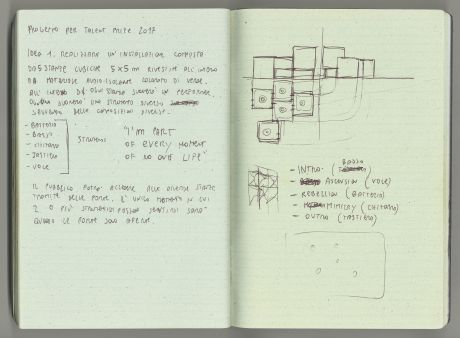 PROGETTO PER TALENT PRIZE 2017
IDEA 1. REALIZZARE UN'INSTALLAZIONE COMPOSTA
DA 5 STANZE CUBICHE 5x5 m RIVESTITE ALL'INTERNO
DA MATERIALE AUDIO-ISOLANTE COLORATO DI VERDE.
ALL'INTERNO DI OGNI STANZA SUONERÀ UN PERFORMER.
OGNUNO SUONERÀ UNO STRUMENTO DIVERSO
SEGUENDO DELLE COMPOSIZIONI DIVERSE.
- BATTERIA
- BASSO
- CHITARRA
- TASTIERA
- VOCE
STRUMENTI
"I'M PART
OF EVERY MOMENT
OF NO ONE LIFE"
IL PUBBLICO POTRÀ ACCEDERE ALLE DIVERSE STANZE
TRAMITE DELLE PORTE. L'UNICO MOMENTO IN CUI
2 O PIÙ STRUMENTI POSSONO SENTIRSI SARÀ
QUANDO LE PORTE SONO APERTE.
BASSO
- INTRO: (
- ASCENSION (VOCE)
- REBELLION (BATTERIA)
- MIMICRY (CHITARRA)
- OUTRO (TASTIERA)